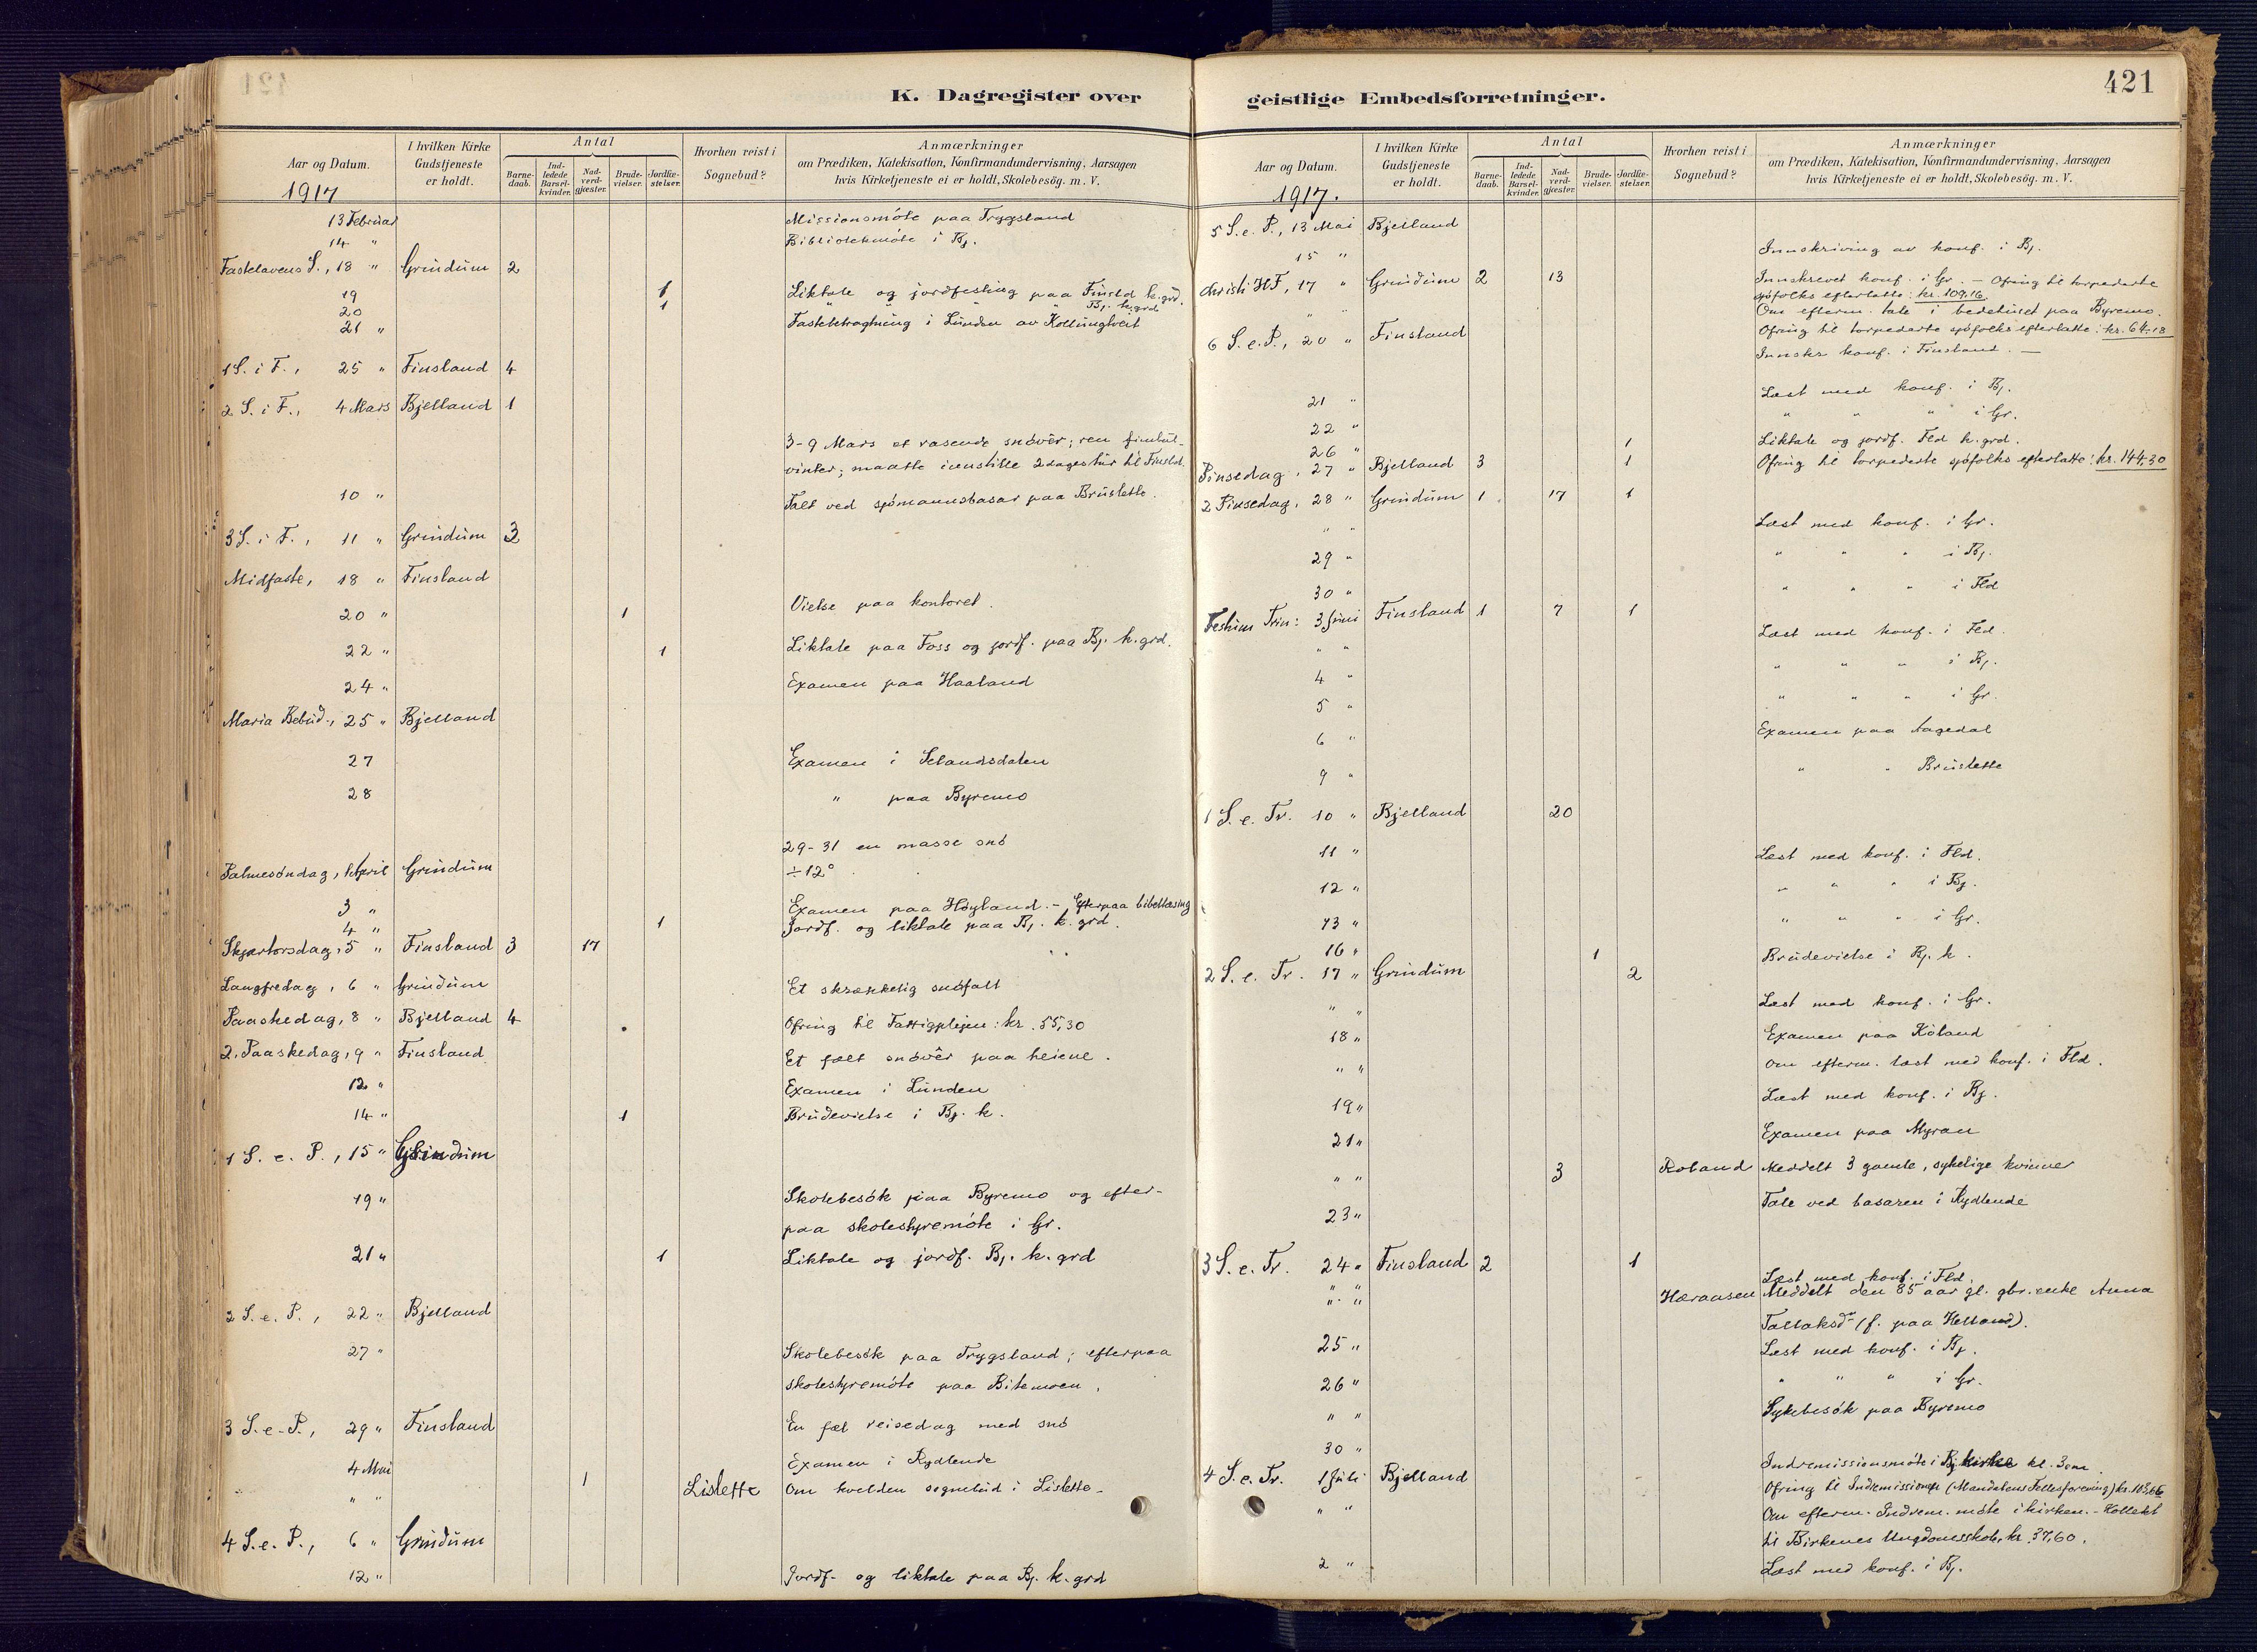 421
K. Dagregister over
Aar og Datum. I hvilken Kirke Gudstjeneste er holdt. Antal Barnedaab. Indledede Barselkvinder. Nadverdgjæster. Brudevielser. Jordfæstelser. Hvorhen reist i Sognebud? Anmærkninger om Prædiken, Katekisation, Konfirmandundervisning, Aarsagen hvis Kirketjeneste ei er holdt, Skolebesög. m. V.
1917
13 Februar Missionsmöte paa Trygsland
14 " Bibliotekmöte i Bj.
Fastelavens S., 18 " Grindum 2
19 1 Liktale og jordfesting paa Finsld k.grd.
20 1 " " " " Bj. k.grd
21 " Fastebetragtning i Lunden av Kollungtveit
1 S. i F., 25 " Finsland 4
2 S. i F., 4 Mars Bjelland 1
3-9 Mars et rasende snövêr; ren fimbul-
vinter; maatte innstille 2 dages tur til Finsld.
10 " Talt ved sjömannsbasar paa Bruslette.
3 S. i F., 11 " Grindum 3
Midfaste, 18 " Finsland
20 " 1 Vielse paa kontoret.
22 " 1 Liktale paa Foss og jordf. paa Bj. k.grd.
24 " Examen paa Haaland
Maria Bebud., 25 " Bjelland
27 Examen i Selandsdalen
28 " paa Byremo
29-31 en masse snö
Palmesöndag, 1 April Grindum ÷12°
3 " Examen paa Höyland. - Efterpaa bibellæsing
4 " 1 Jordf. og liktale paa Bj. k. grd.
Skjærtorsdag, 5 " Finsland 3 17
Langfredag, 6 " Grindum Et skrækkelig snöfall
Paaskedag, 8 " Bjelland 4 Ofring til Fattigplejen: kr. 55,30
2. Paaskedag, 9 " Finsland Et fælt snövêr paa heiene.
12 " Examen i Lunden
14 " 1 Brudevielse i Bj. k.
1 S. e. P., 15 " Grindum
19 " Skolebesök paa Byremo og efter-
paa skolestyremöte i Gr.
21 " 1 Liktale og jordf. Bj. k. grd
2 S. e. P., 22 " Bjelland
27 " Skolebesök paa Trygsland; efterpaa
skolestyremöte paa Bitemoen.
3 S. e. P., 29 " Finsland En fæl reisedag med snö
4 Mai Examen i Rydlende
" " 1 Lislette Om kvelden sognebud i Lislette.
4 S. e. P., 6 " Grindum
12 " Jordf. og liktale paa Bj. k. grd
geistlige Embedsforretninger.
421
Aar og Datum. I hvilken Kirke Gudstjeneste er holdt. Antal Barnedaab. Indledede Barselkvinder. Nadverdgjæster. Brudevielser. Jordfæstelser. Hvorhen reist i Sognebud? Anmærkninger om Prædiken, Katekisation, Konfirmandundervisning, Aarsagen hvis Kirketjeneste ei er holdt, Skolebesög. m. V.
1917.
5 S. e. P., 13 Mai Bjelland
15 " Innskriving av konf. i Bj.
Christi HF, 17 " Grindum 2 13 Innskrevet konf. i Gr. - Ofring til torpederte
sjöfolks efterlatte: kr. 109,16.
" " Om efterm. tale i bedehuset paa Byremo.
6 S. e. P., 20 " Finsland Ofring til torpederte sjöfolks efterlatte: kr. 64,18
Innskr konf. i Finsland. -
21 " Læst med konf. i Bj.
22 " " " " i Gr.
26 " 1 Liktale og jordf. Fld k. grd.
Pinsedag, 27 " Bjelland 3 1 Ofring til torpederte sjöfolks efterlatte: kr. 144,30
2 Pinsedag, 28 " Grindum 1 17 1
" " Læst med konf. i Gr.
29 " " " " i Bj.
30 " " " " i Fld
Festum Trin: 3 Juni Finsland 1 7 1
" " Læst med konf. i Fld.
4 " " " " i Bj.
5 " " " " i Gr.
6 " Examen paa Aagedal
9 " " " Bruslette
1 S. e. Tr. 10 " Bjelland 20
11 " Læst med konf. i Fld.
12 " " " " i Bj.
13 " " " " i Gr.
16 " 1 Brudevielse i Bj. k.
2 S. e. Tr. 17 " Grindum 2
" " Læst med konf. i Gr.
18 " Examen paa Köland
" " Om efterm. læst med konf. i Fld.
19 " Læst med konf. i Bj.
21 " Examen paa Myran
" " 3 Röland Meddelt 3 gamle, sykelige kvinner
23 " Tale ved basaren i Rydlende
3 S. e. Tr. 24 " Finsland 2 1
" " Læst med konf. i Fld.
" " Hæraasen Meddelt den 85 aar gl. gbr. enke Anna
Tallaksdr (f. paa Helland).
25 " Læst med konf. i Bj.
26 " " " " i Gr.
" " Sykebesök paa Byremo
30 " Indremissionsmöte i Bj. kirke kl. 3 em.
4 S. e. Tr. 1 Juli Bjelland Ofring til Indremissionen (Mandalens Fellesforening) kr. 105,66
" " Om efterm. Indrem. möte i kirken. - Kollekt
til Birkenes Ungdomsskole, kr. 37,60.
2 " Læst med konf. i Bj.